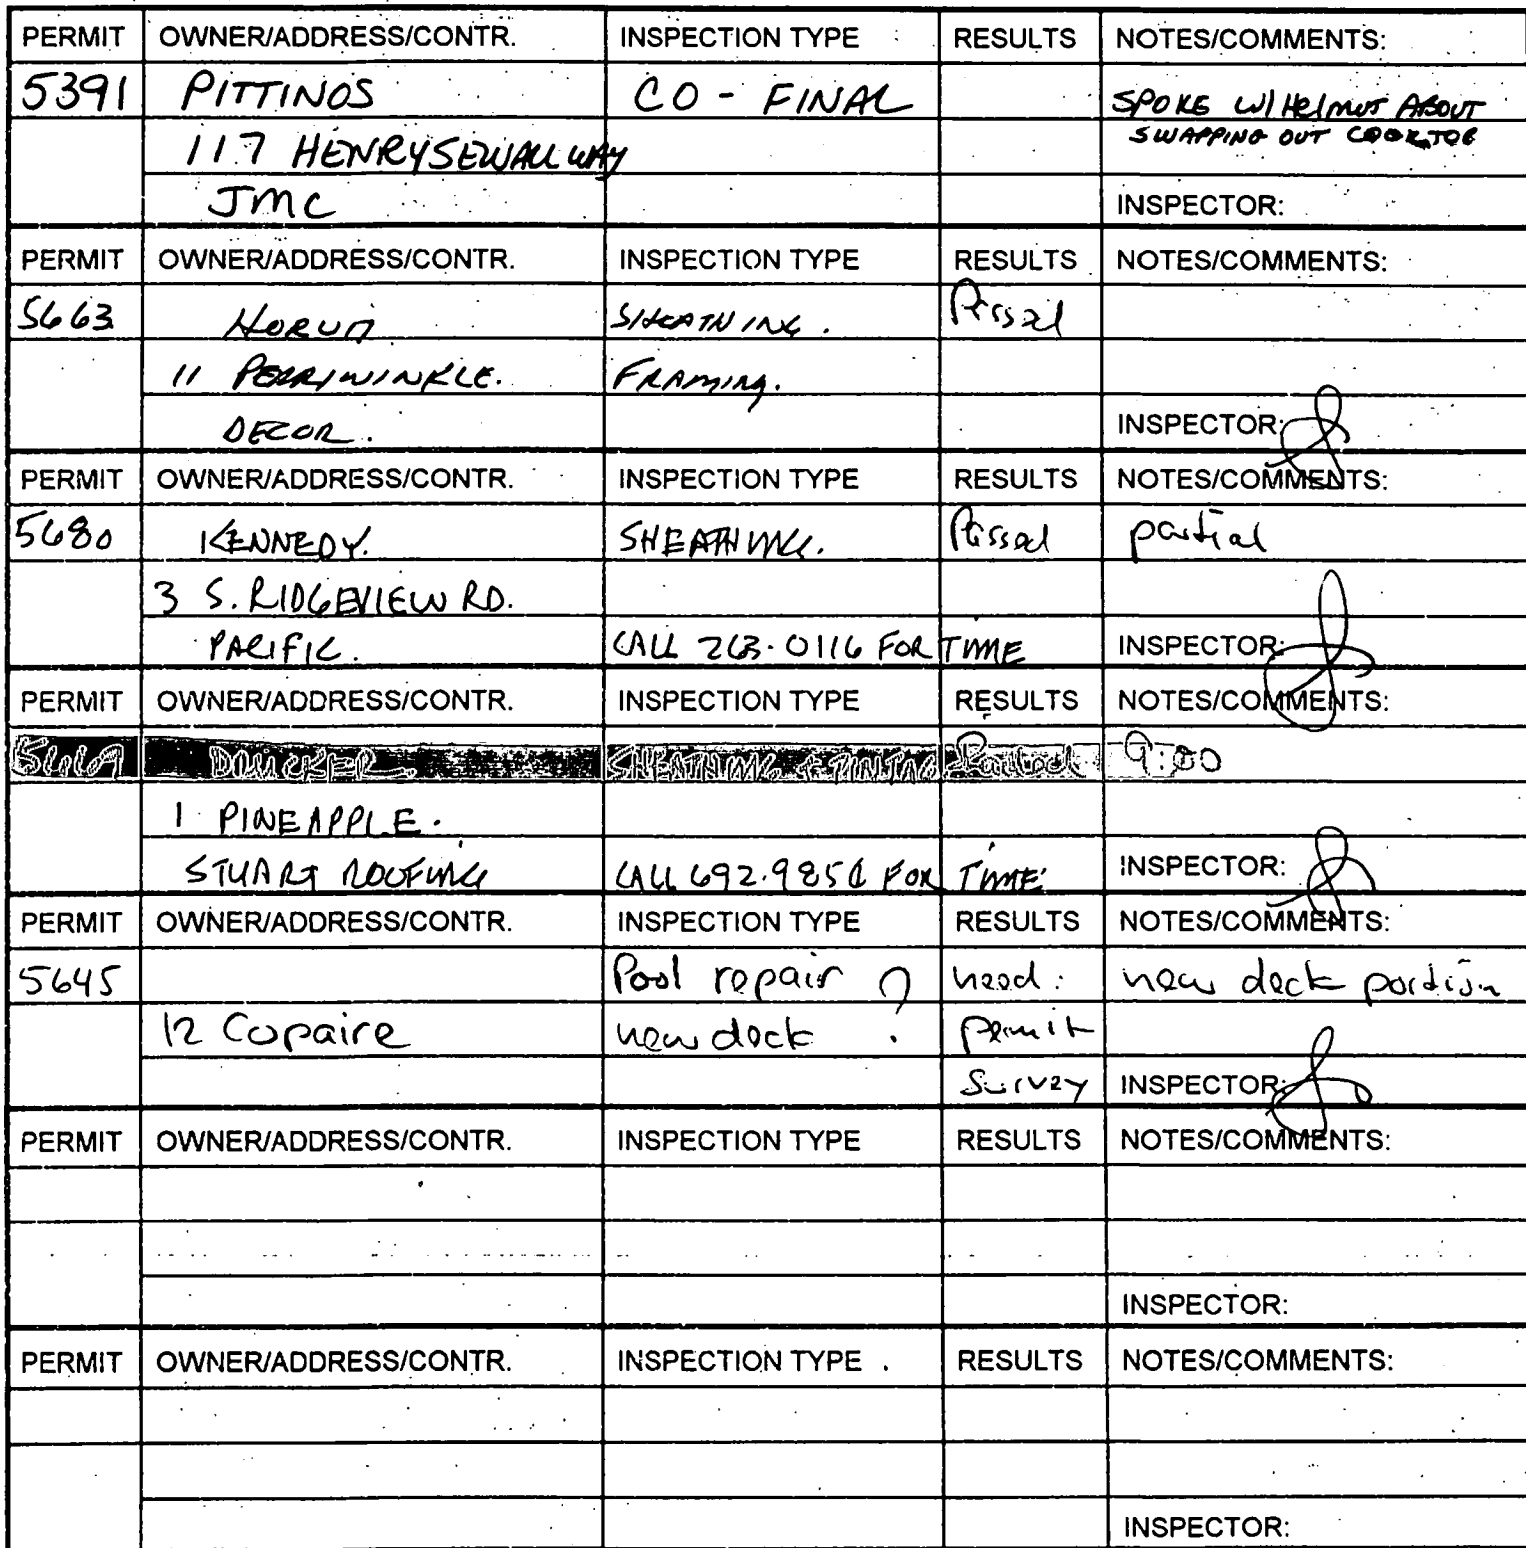 PERMIT OWNER/ADDRESS/CONTR. INSPECTION TYPE RESULTS NOTES/COMMENTS:
5391 PITTINOS CO - FINAL SPOKE W/ Helmut ABOUT
117 HENRY SEWALL WAY SWAPPING OUT COOKTOP
JMC INSPECTOR:
PERMIT OWNER/ADDRESS/CONTR. INSPECTION TYPE RESULTS NOTES/COMMENTS:
5663 SHEATHING. Passed
11 PERRIWINKLE. FRAMING.
DECOR. INSPECTOR:
PERMIT OWNER/ADDRESS/CONTR. INSPECTION TYPE RESULTS NOTES/COMMENTS:
5680 KENNEDY. SHEATHING. Passed partial
3 S. RIDGEVIEW RD.
PACIFIC. CALL 263-0116 FOR TIME INSPECTOR:
PERMIT OWNER/ADDRESS/CONTR. INSPECTION TYPE RESULTS NOTES/COMMENTS:
5669 DRUCKER SHEATHING & TINTAG 9:00
1 PINEAPPLE.
STUART ROOFING CALL FOR TIME INSPECTOR:
PERMIT OWNER/ADDRESS/CONTR. INSPECTION TYPE RESULTS NOTES/COMMENTS:
5645 Pool repair ? need: new deck portion
12 Copaire new deck permit
survey INSPECTOR:
PERMIT OWNER/ADDRESS/CONTR. INSPECTION TYPE RESULTS NOTES/COMMENTS:
INSPECTOR:
PERMIT OWNER/ADDRESS/CONTR. INSPECTION TYPE . RESULTS NOTES/COMMENTS:
INSPECTOR: